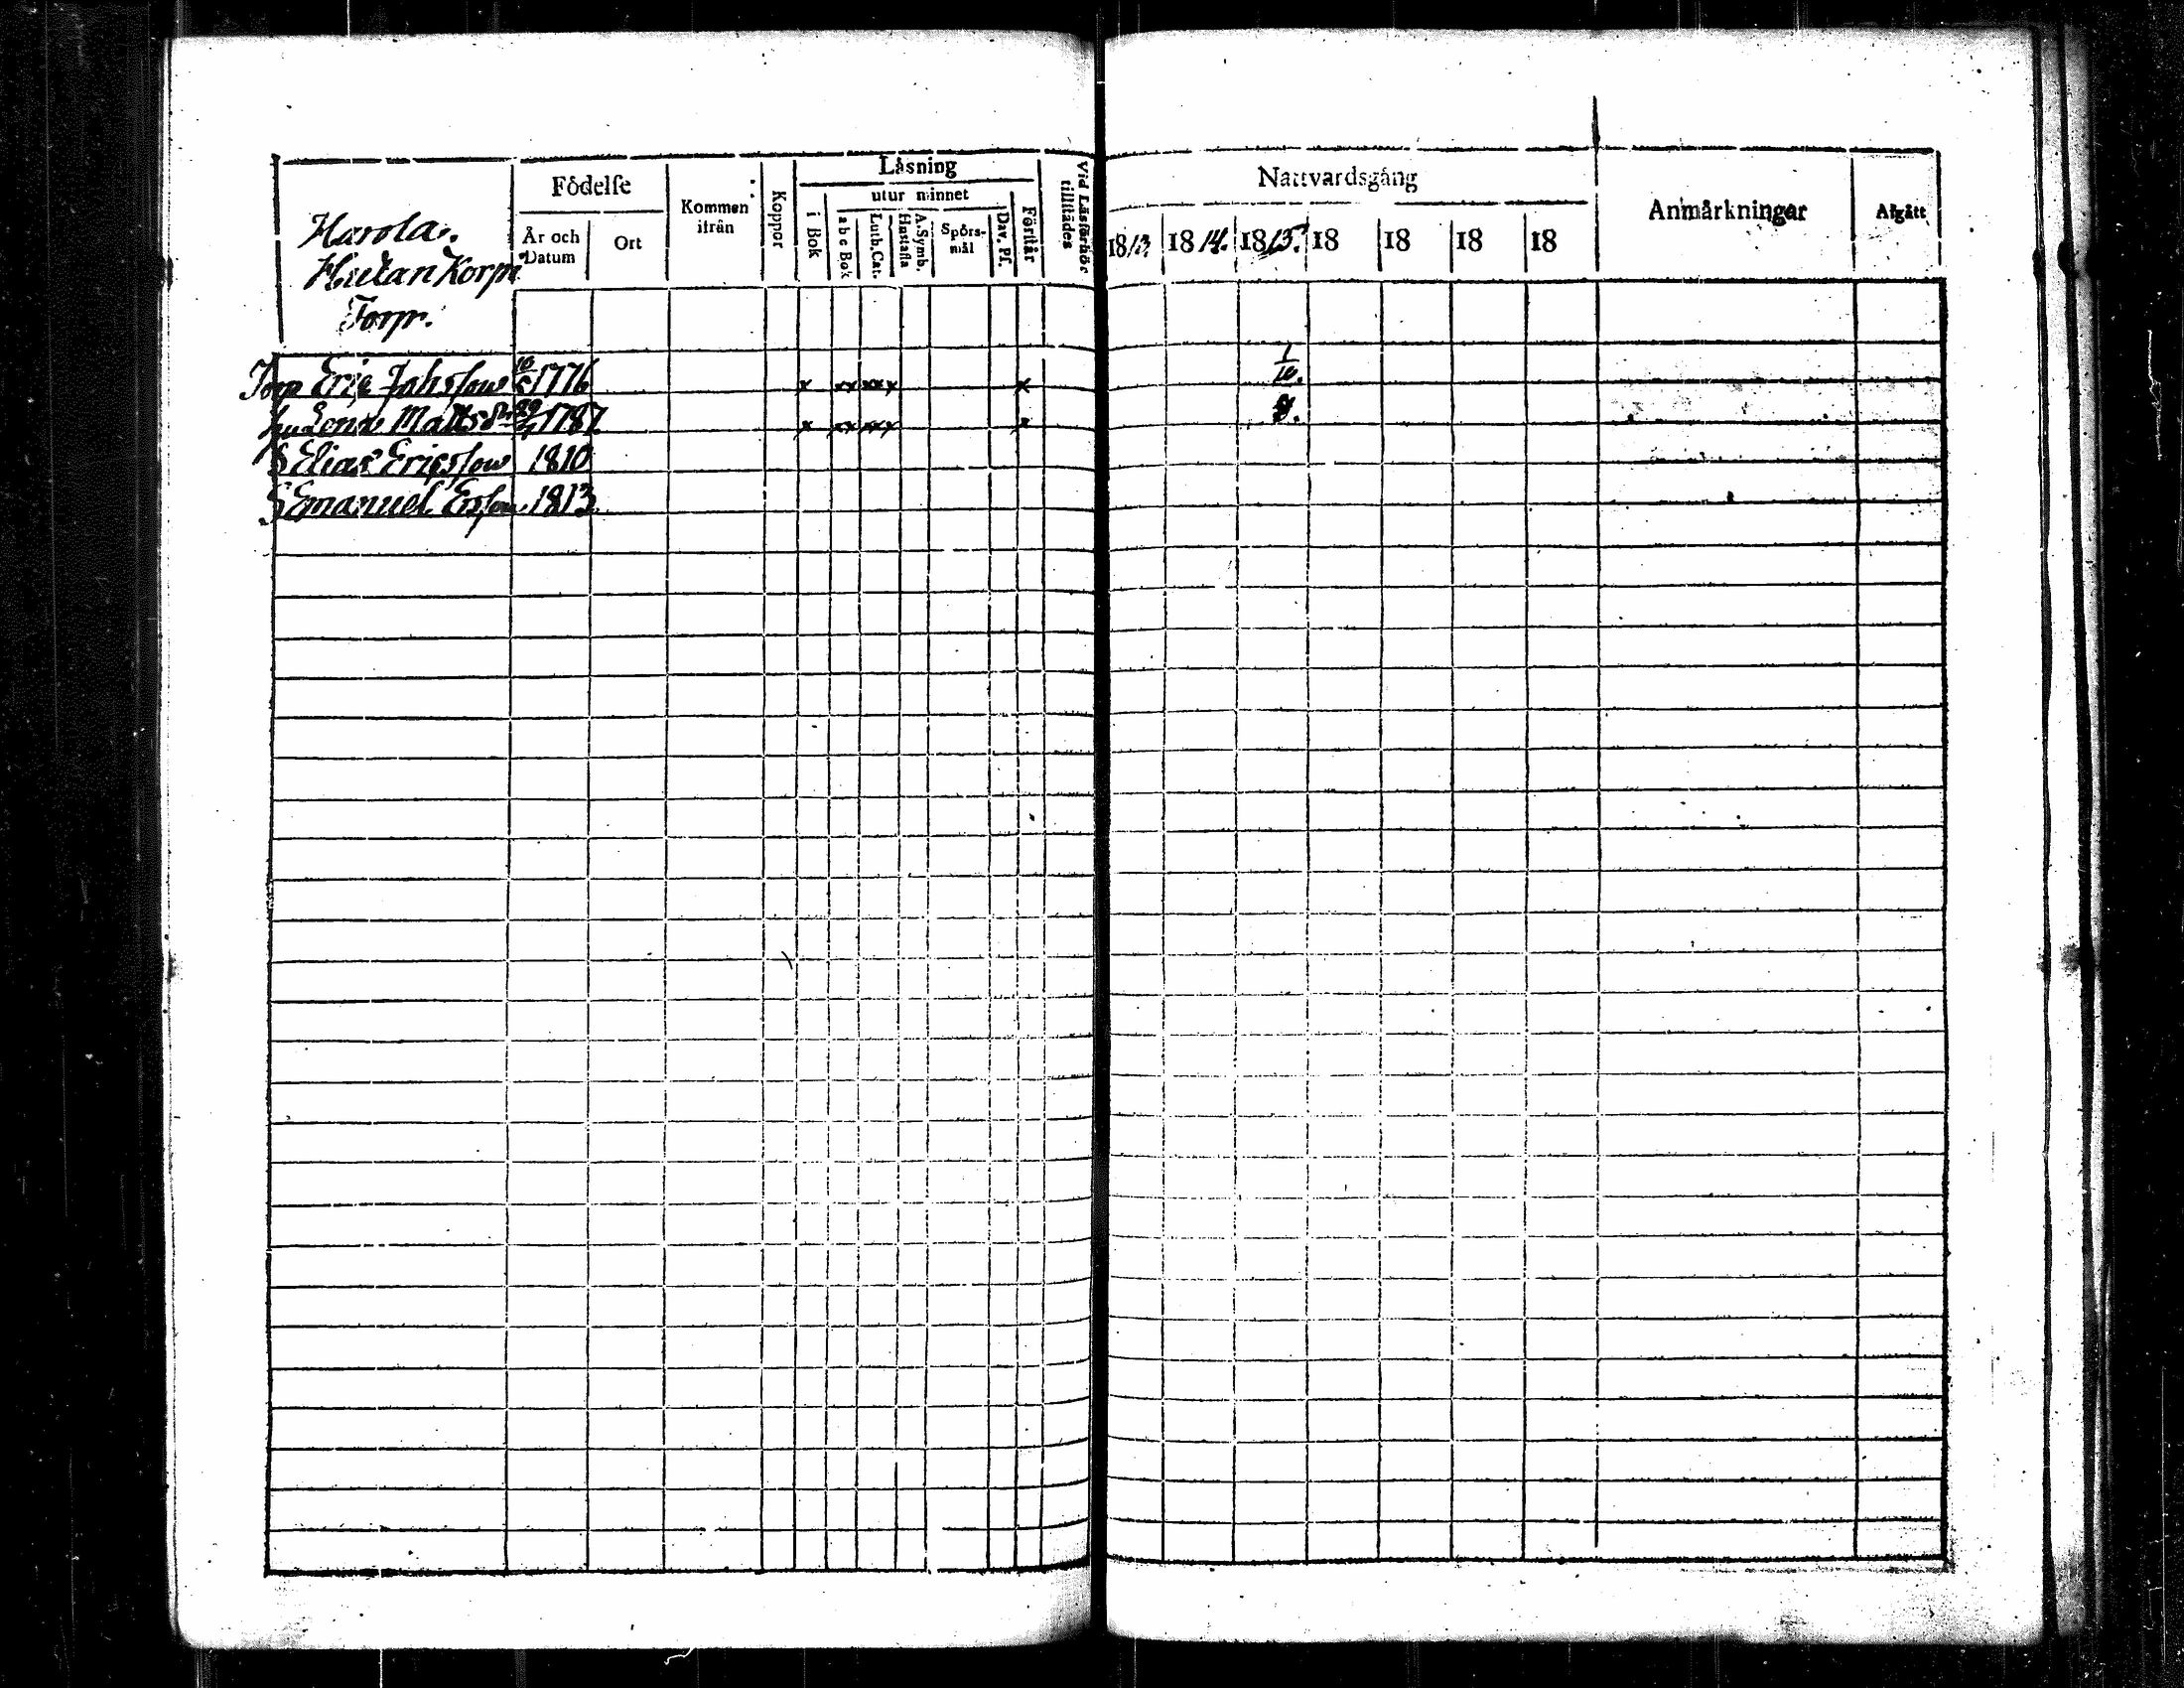 Harola.
Hielan Korpi
Torp.
Födelse
År och Datum
Ort
Kommen ifrån
Koppor
Läsning
i Bok
utur minnet
a b c Bok
Luth. Cat.
Hustafla
A. Symb.
Spörs-mål
Dav. Ps.
Förstår
Vid Läsförhör tillstädes
Nattvardsgång
1813 1814. 1815. 18 18 18 18
Anmärkningar
Afgått
Torp Eric Johsson 10/5 1776 x xx xxx x 1/10.
hu Lena Mattsdr 1787. x xx xxx x
S Elias Ericsson 1810
S Emanuel Ersson. 1813